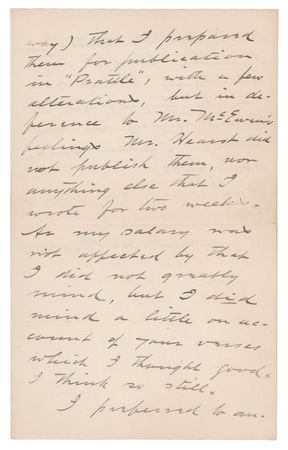 way) that I prepared
them for publication
in "Prattle", with a few
alterations, but in de-
ference to Mr. McEwen's
feelings Mr. Hearst did
not publish them, nor
anything else that I
wrote for two weeks.
As my salary was
not affected by that
I did not greatly
mind, but I did
mind a little on ac-
count of your verses
which I thought good.
I think so still.
I preferred to an-